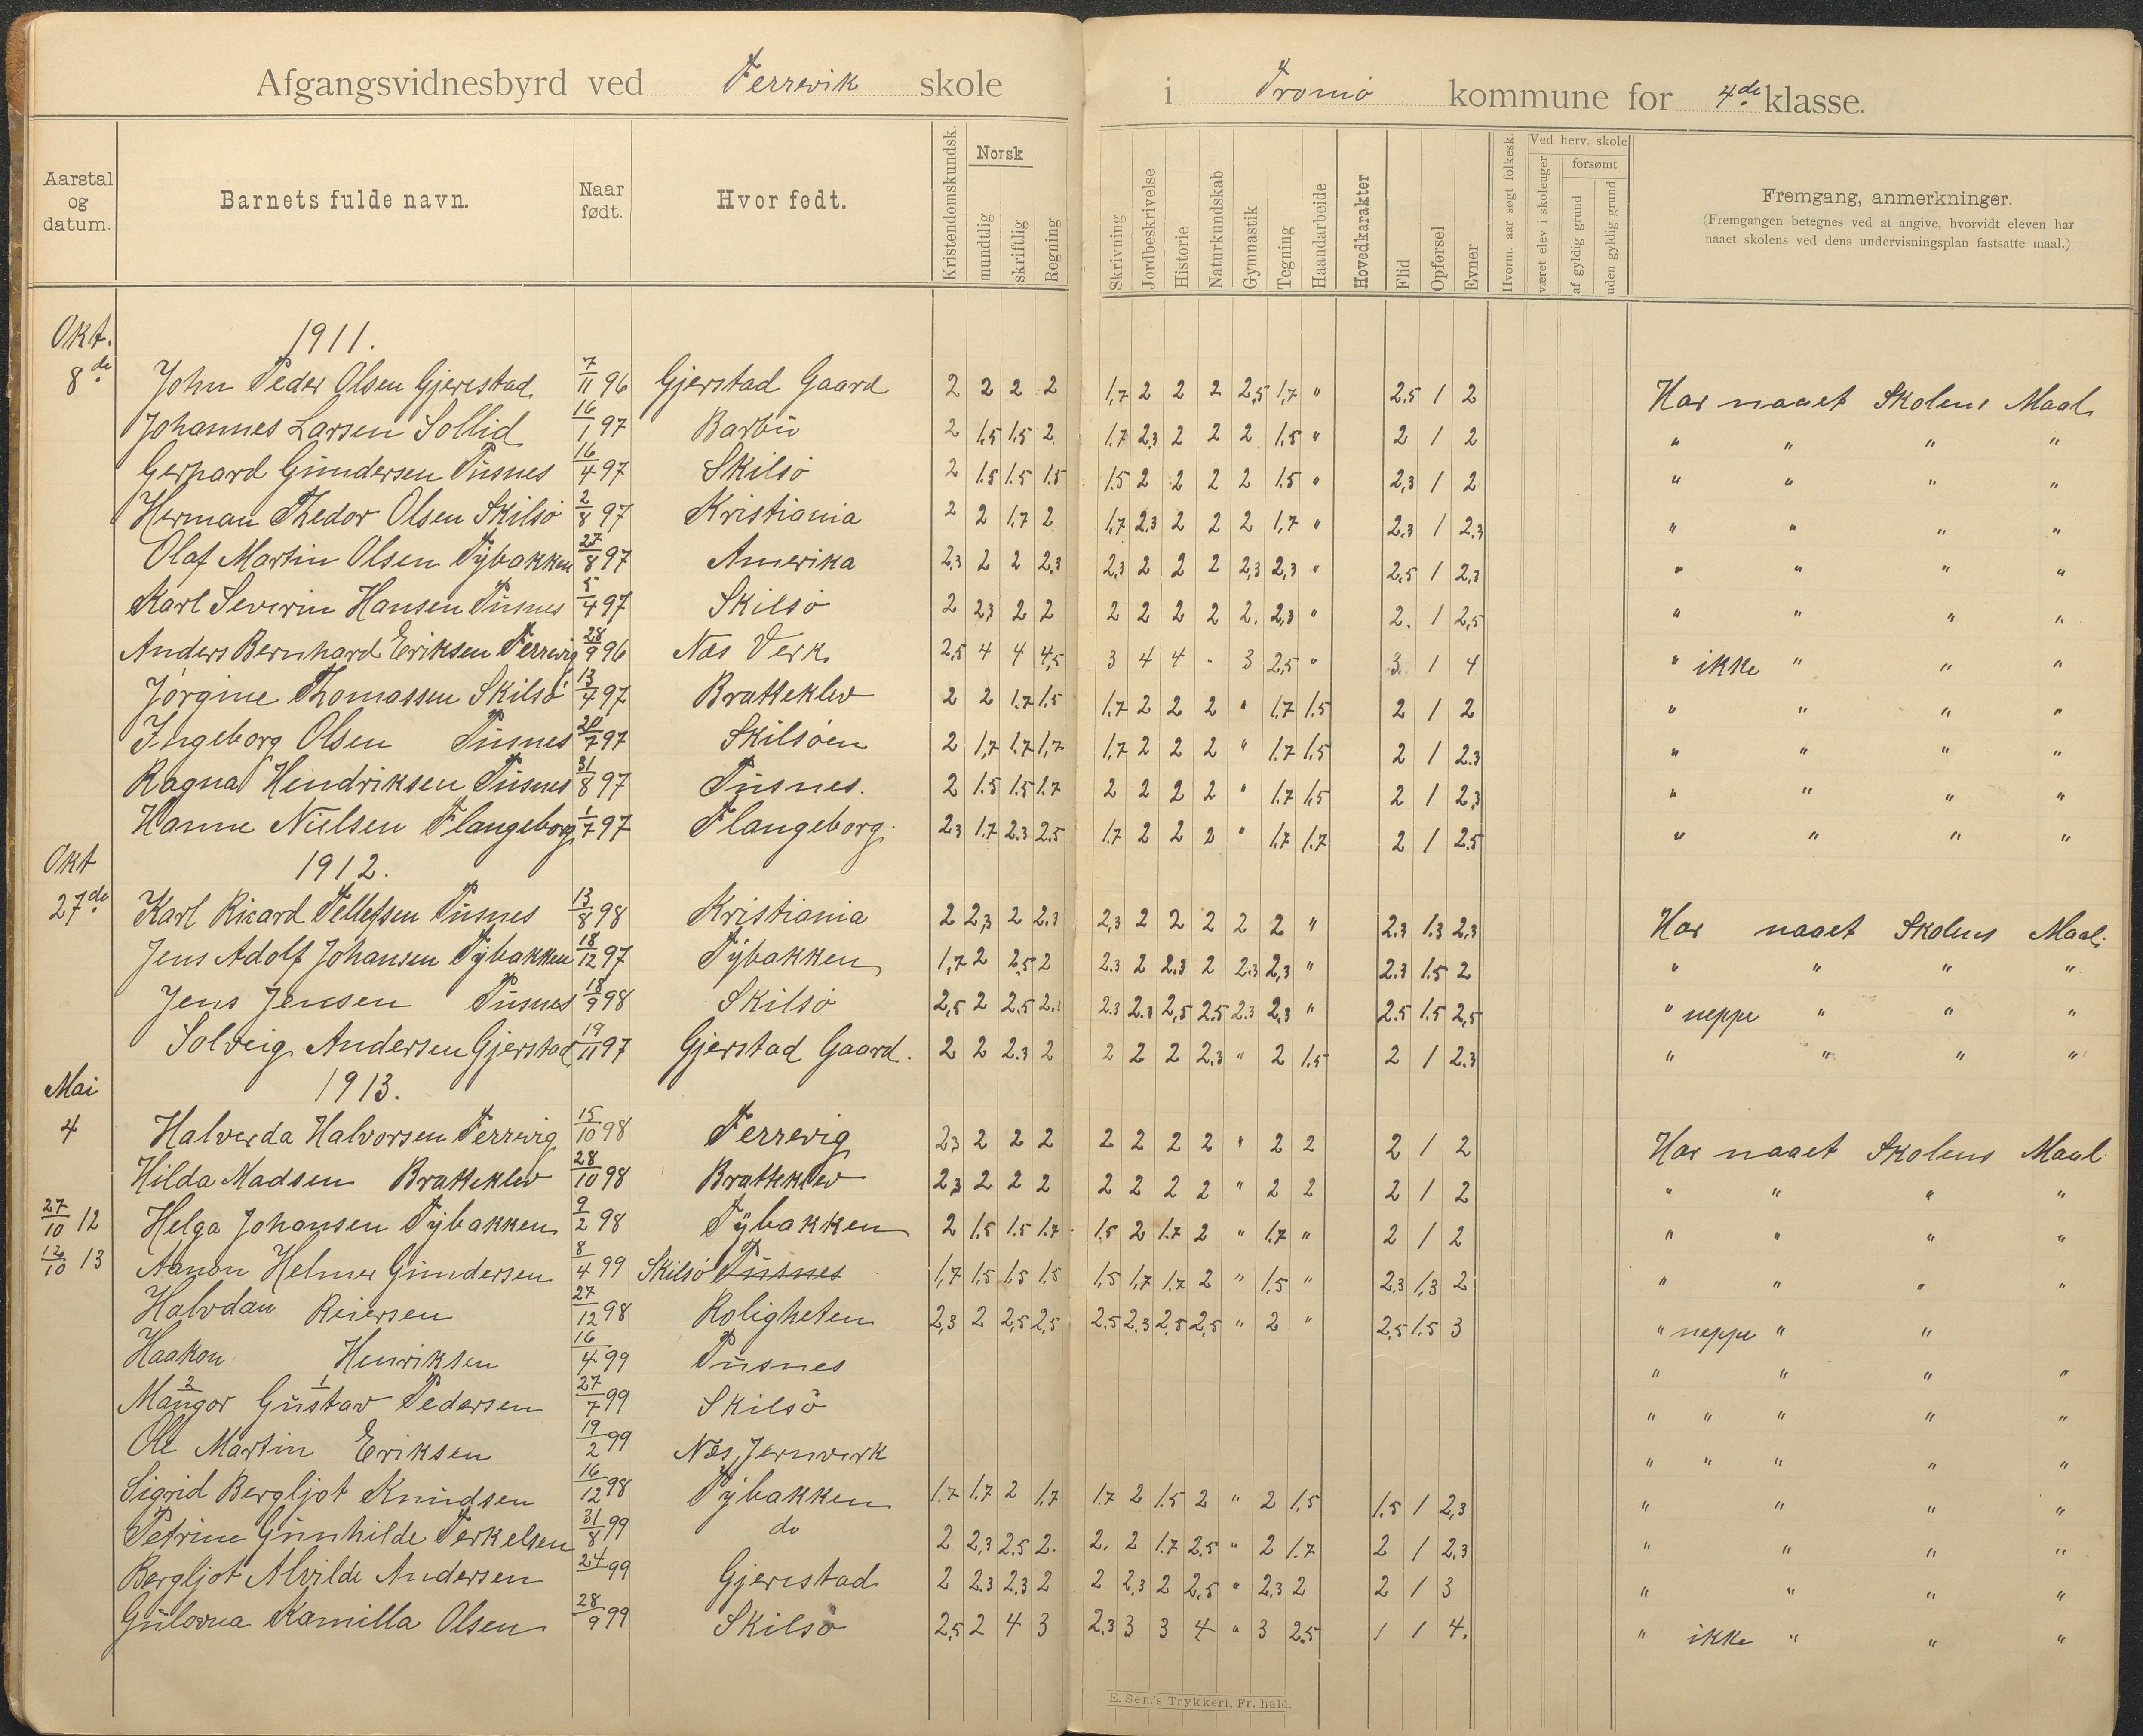 Afgangsvidnesbyrd ved Ferrevik skole i Tromø kommune for 4de klasse.
Aarstal og datum. Barnets fulde navn. Naar født. Hvor født. Kristendomskundsk. Norsk mundtlig skriftlig Regning Skrivning Jordbeskrivelse Historie Naturkundskab Gymnastik Tegning Haandarbeide Hovedkarakter Flid Opførsel Evner Hvorm. aar søgt folkesk. Ved herv. skole været elev i skoleuger forsømt af gyldig grund uden gyldig grund Fremgang, anmerkninger.
(Fremgangen betegnes ved at angive, hvorvidt eleven har
naaet skolens ved dens undervisningsplan fastsatte maal.)
Okt. 1911.
8de John Peder Olsen Gjerestad 7/11 96 Gjerstad Gaard 2 2 2 2 1,7 2 2 2 2,5 1,7 " 2.5 1 2 Har naaet Skolens Maal
Johannes Larsen Sollid 16/1 97 Barbu 2 1,5 1.5 2 1.7 2,3 2 2 2 1.5 " 2 1 2 " " " "
Gerhard Gundersen Pusnes 16/4 97 Skilsø 2 1.5 1.5 1.5 1.5 2 2 2 2 1.5 " 2,3 1 2 " " " "
Herman Thedor Olsen Skilsø 2/8 97 Kristiania 2 2 1.7 2 1,7 2.3 2 2 2 1,7 " 2.3 1 2.3 " " " "
Olaf Martin Olsen Tybakken 27/8 97 Amerika 2,3 2 2 2.3 2,3 2 2 2 2,3 2,3 " 2.5 1 2,3 " " " "
Karl Severin Hansen Pusnes 5/4 97 Skilsø 2 2,3 2 2 2 2 2 2 2. 2,3 " 2. 1 2,5 " " " "
Anders Bernhard Eriksen Ferrevig 28/9 96 Næs Verk 2,5 4 4 4,5 3 4 4 - 3 2,5 " 3. 1 4 " ikke " " "
Jørgine Thomassen Skilsø 13/4 97 Bratteklev 2 2 1.7 1.5 1.7 2 2 2 " 1.7 1.5 2 1 2 " " " "
Ingeborg Olsen Pusnes 20/7 97 Skilsøen 2 1,7 1.7 1,7 1,7 2 2 2 " 1.7 1,5 2 1 2.3 " " " "
Ragna Hendriksen Pusnes 31/8 97 Pusnes. 2 1.5 1.5 1.7 2 2 2 2 " 1.7 1,5 2 1 2,3 " " " "
Hanne Nielsen Flangeborg 1/7 97 Flangeborg. 2.3 1.7 2.3 2.5 1.7 2 2 2 " 1.7 1.7 2 1 2.5 " " " "
Okt 1912.
27de Karl Ricard Tellefsen Pusnes 13/8 98 Kristiania 2 2,3 2 2.3 2,3 2 2 2 2 2 " 2.3 1.3 2,3 Har naaet Skolens Maal.
Jens Adolf Johansen Tybakken 18/12 97 Tybakken 1,7 2 2,5 2 2.3 2 2.3 2 2.3 2,3 " 2.3 1.5 2 " " " "
Jens Jensen Pusnes 18/9 98 Skilsø 2,5 2 2.5 2.3 2.3 2.3 2,5 2.5 2.3 2.3 " 2.5 1.5 2,5 " neppe " " "
Solveig Andersen Gjerstad 19/11 97 Gjerstad Gaard. 2 2 2.3 2 2 2 2 2.3 " 2 1.5 2 1 2.3 " " " "
Mai 1913.
4 Halverda Halvorsen Ferrevig 15/10 98 Ferrevig 2,3 2 2 2 2 2 2 2 " 2 2 2 1 2 Har naaet Skolens Maal.
Hilda Madsen Bratteklev 28/10 98 Bratteklev 2,3 2 2 2 2 2 2 2 " 2 2 2 1 2 " " " "
27/10 12 Helga Johansen Tybakken 9/2 98 Tybakken 2 1.5 1.5 1.7 1.5 2 1.7 2 " 1.7 " 2 1 2 " " " "
12/10 13 Aanon Helmer Gundersen 8/4 99 Skilsø Pusnes 1,7 1.5 1.5 1.5 1,5 1,7 1,7 2 " 1,5 " 2,3 1,3 2 " " " "
Halvdan Reiersen 27/12 98 Roligheten 2,3 2 2,5 2,5 2.5 2.3 2,5 2,5 " 2 " 2,5 1.5 3 " neppe " "
Haakon Henriksen 16/4 99 Pusnes " " " "
Mangor 2 Gustav 1 Pedersen 27/7 99 Skilsø " " " " "
Ole Martin Eriksen 19/2 99 Næs Jernverk " " " " "
Sigrid Bergljot Knudsen 16/12 98 Tybakken 1.7 1.7 2 1,7 1.7 2 1.5 2 " 2 1.5 1.5 1 2,3 " " " "
Petrine Gunhilde Terkelsen 31/8 99 do 2 2,3 2.5 2. 2. 2 1.7 2.5 " 2 1.7 2 1 2.3 " " " "
Bergljot Alvilde Andersen 24/ 99 Gjerestad 2 2.3 2.3 2 2 2,3 2 2,5 " 2.3 2 2 1 3 " " " "
Gulovna Kamilla Olsen 28/9 99 Skilsø 2,5 2 4 3 2.3 3 3 4 " 3 2.5 1 1 4. " ikke " " "
E. Sem's Trykkeri, Fr. hald.